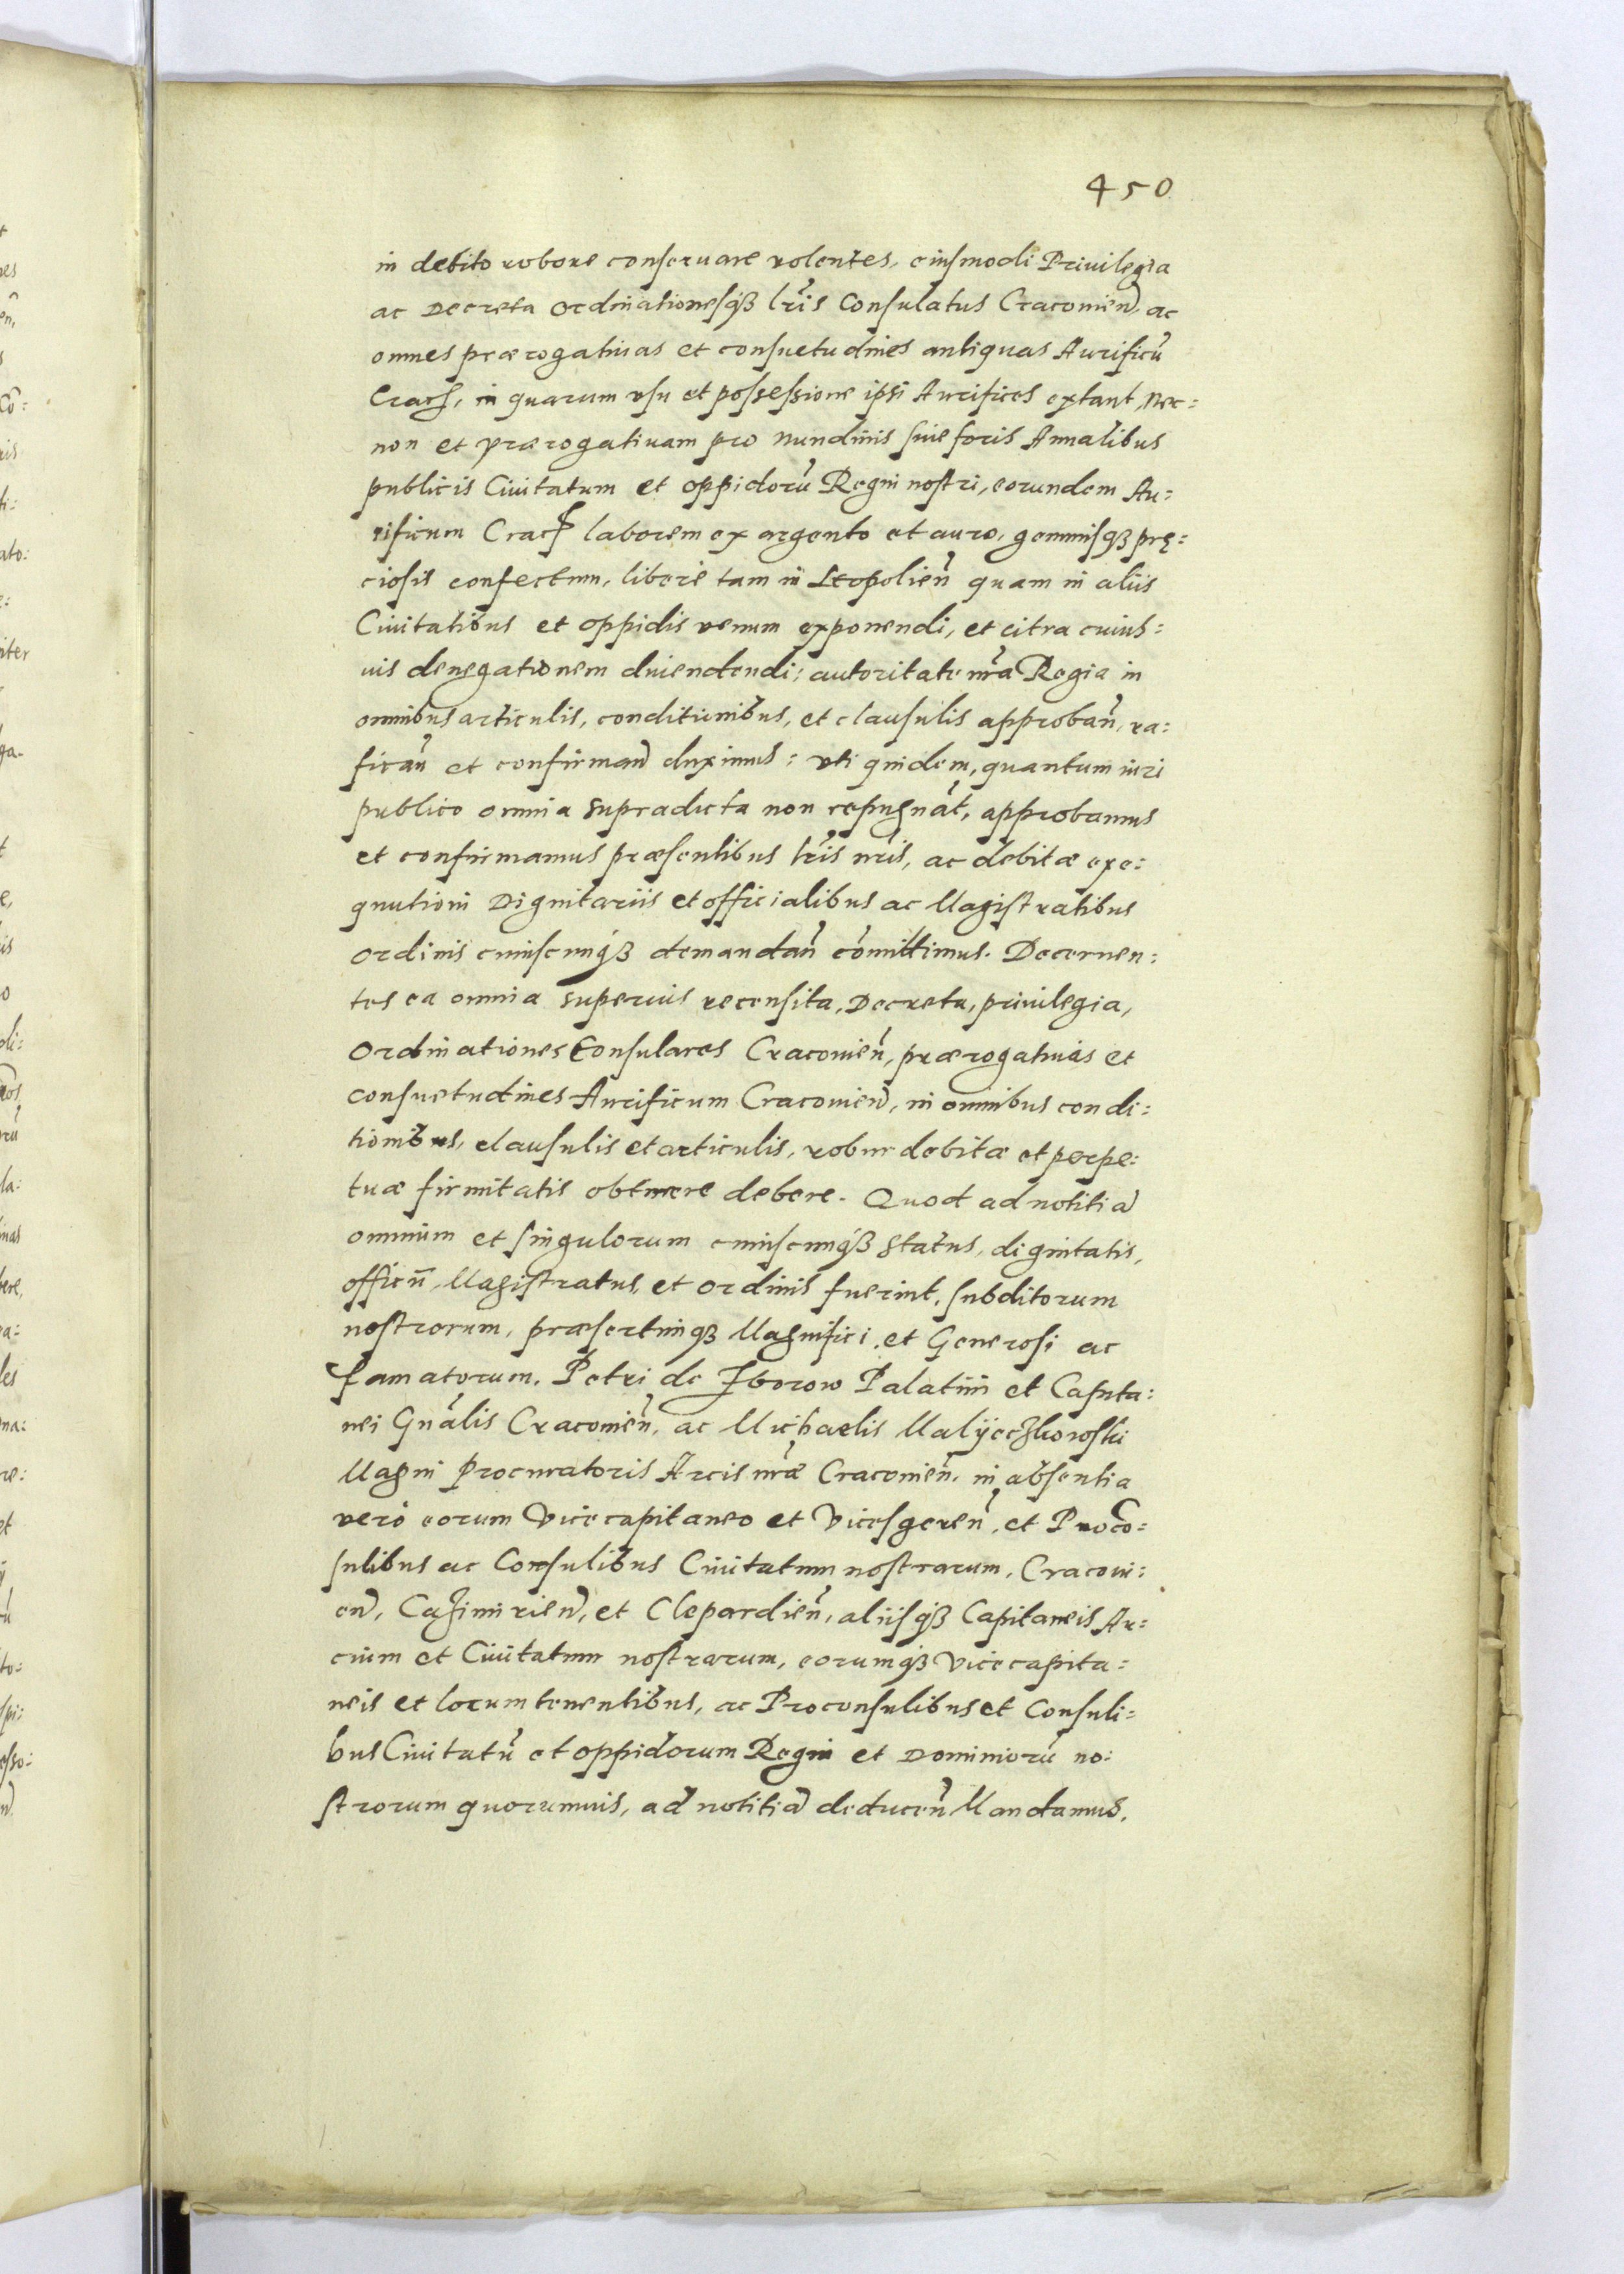 450
in debito robore conseruare volentes, eiusmodi Priuilegia
ac Decreta ordinationesq₃ lr̃is Consulatus Cracouien̄ ac
omnes prærogatiuas et consuetudines antiquas Aurificũ
Crac̃, in quarum vsu et possessione ipsi Aurifices extant, Nec=
non et prærogatiuam pro Nundinis siue foris Annalibus
publicis Ciuitatum et oppidorũ Regni nostri, eorundem Au=
rificum Crac̃ laborem ex argento et auro, gemmisq₃ prę=
ciosis confectum, libere tam in Leopolien̄ quam in aliis
Ciuitatibus et oppidis venum exponendi, et citra cuius=
uis denegationem diuendendi: autoritate nr̃a Regia in
omnibus articulis, conditionibus, et clausulis approban̄, ra=
fican̄ et confirman̄ duximus: vti quidem, quantum iuri
publico omnia supradicta non repugnãt, approbamus
et confirmamus præsentibus lr̃is nr̃is, ac debitæ exe=
quutioni Dignitariis et officialibus ac Magistratibus
ordinis cuiuscunq₃ demandan̄ cõmittimus. Decernen=
tes ea omnia superius recensita, Decreta, priuilegia,
Ordinationes Consulares Cracouien̄, prærogatiuas et
consuetudines Aurificum Cracouien̄, in omnibus condi=
tionibus, clausulis et articulis, robur debitæ et perpe=
tuæ firmitatis obtinere debere. Quod ad notitiã
omnium et singulorum cuiuscunq₃ status, dignitatis,
officii, Magistratus, et ordinis fuerint, subditorum
nostrorum, præsertimq₃ Magnifici, et Generosi ac
famatorum, Petri de Zborow Palatini et Capita=
nei Gnãlis Cracouien̄, ac Michaelis Maliyeczkowski
Magni Procuratoris Arcis nr̃æ Cracouien̄, in absentia
vero eorum Vicecapitaneo et Vicesgeren̄, et Procõ=
sulibus ac Consulibus Ciuitatum nostrarum, Cracoui=
en̄, Cazimirien̄, et Clepardien̄, aliisq₃ Capitaneis Ar=
cium et Ciuitatum nostrarum, eorumq₃ Vicecapita=
neis et locumtenentibus, ac Proconsulibus et Consuli=
bus Ciuitatũ et oppidorum Regni et Dominiorũ no=
strorum quorumuis, ad notitiã deducen̄ Mandamus.